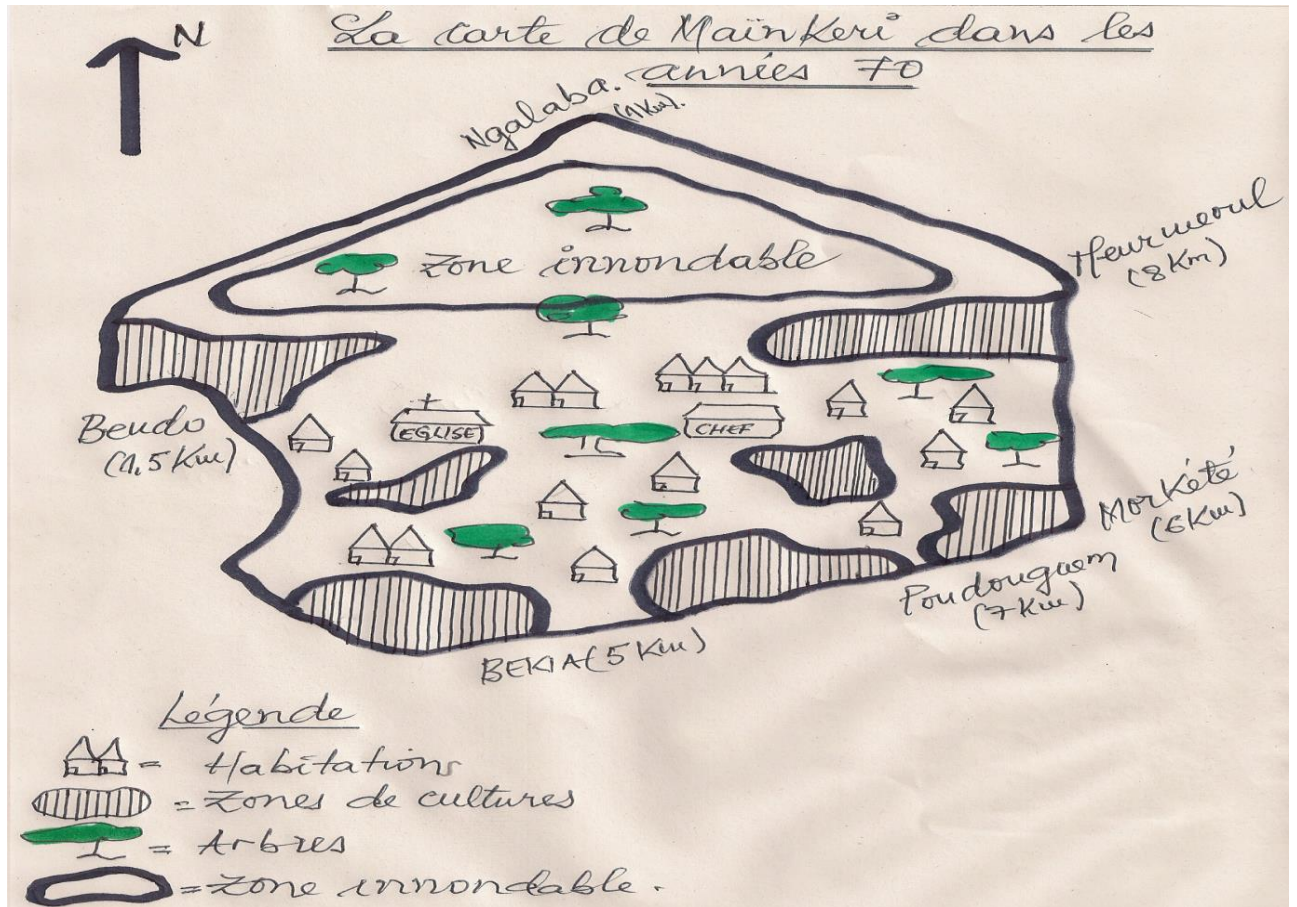 N
La carte de Maïnkeri dans les
années 70
Ngalaba.
(1Km).
Zone innondable
Heurmeoul
(8Km)
Bendo
(1,5Km)
EGLISE
CHEF
Morkété
(6Km)
Poudouguem
(7Km)
BEKIA (5Km)
Légende
= Habitations
= Zones de cultures
= Arbres
= Zone innondable.